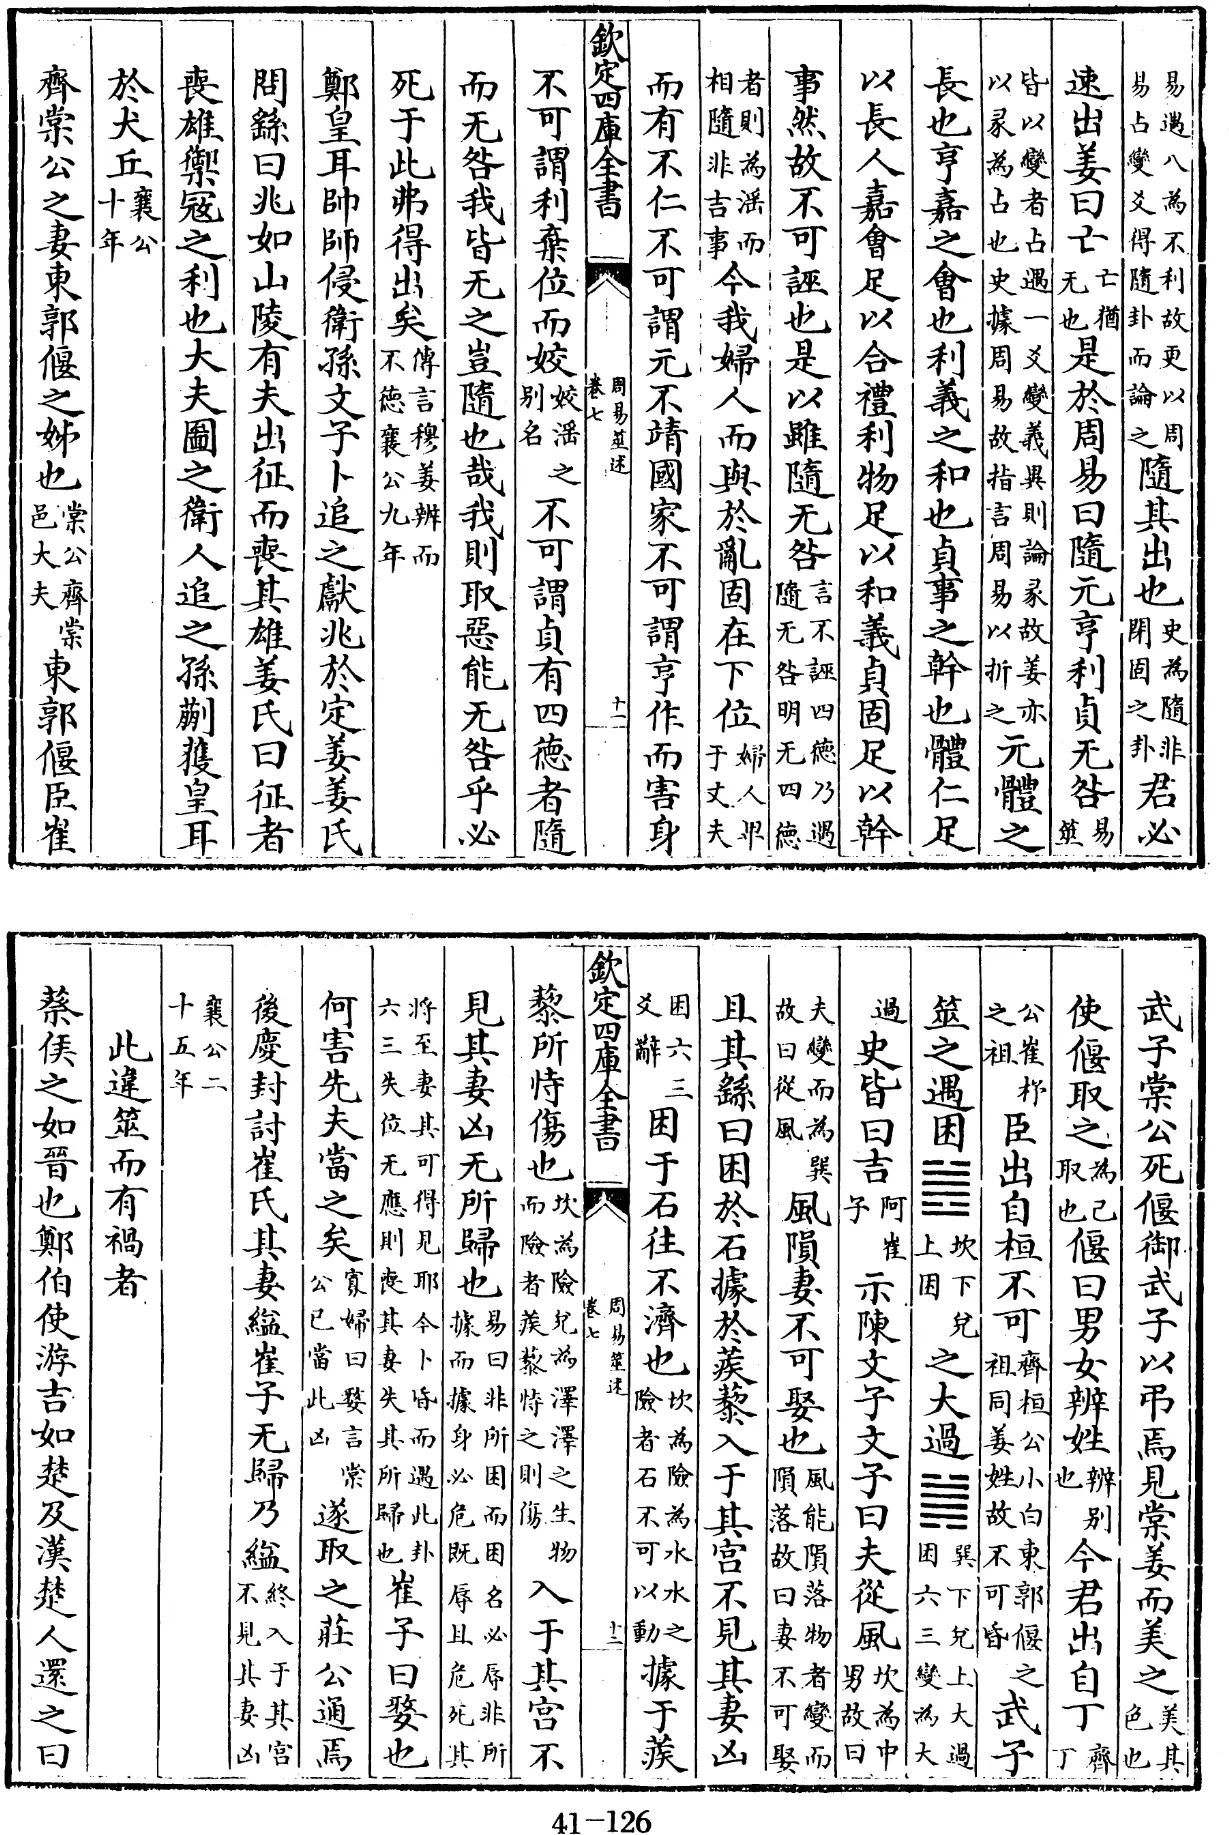 易遇八為不利故更以周易占變爻得隨卦而論之隨其出也史為隨非閉固之卦君必
速出姜曰亡亡猶无也是於周易曰隨元亨利貞无咎易筮
皆以變者占遇一爻變義異則論彖故姜亦以彖為占也史據周易故指言周易以折之元體之
長也亨嘉之會也利義之和也貞事之幹也體仁足
以長人嘉會足以合禮利物足以和義貞固足以幹
事然故不可誣也是以雖隨无咎言不誣四德乃遇隨无咎明无四德
者則為淫而相隨非吉事今我婦人而與於亂固在下位婦人卑于丈夫
而有不仁不可謂元不靖國家不可謂亨作而害身
欽定四庫全書
周易筮述
卷七
十一
不可謂利棄位而姣姣淫之别名不可謂貞有四德者隨
而无咎我皆无之豈隨也哉我則取惡能无咎乎必
死于此弗得出矣傳言穆姜辨而不德襄公九年
鄭皇耳帥師侵衛孫文子卜追之獻兆於定姜姜氏
問繇曰兆如山陵有夫出征而喪其雄姜氏曰征者
喪雄禦寇之利也大夫圖之衛人追之孫蒯獲皇耳
於犬丘襄公十年
齊棠公之妻東郭偃之姊也棠公齊棠邑大夫東郭偃臣崔
武子棠公死偃御武子以弔焉見棠姜而美之美其色也
使偃取之為己取也偃曰男女辨姓辨别也今君出自丁齊丁
公崔杼之祖臣出自桓不可齊桓公小白東郭偃之祖同姜姓故不可昏武子
筮之遇困䷮坎下兌上困之大過䷛巽下兌上大過困六三變為大
過史皆曰吉阿崔子示陳文子文子曰夫從風坎為中男故曰
夫變而為巽故曰從風風隕妻不可娶也風能隕落物者變而隕落故曰妻不可娶
且其繇曰困於石據於蒺藜入于其宫不見其妻凶
困六三爻辭困于石往不濟也坎為險為水水之險者石不可以動據于蒺
欽定四庫全書
周易筮述
卷七
十二
藜所恃傷也坎為險兌為澤澤之生物而險者蒺藜恃之則傷入于其宫不
見其妻凶无所歸也易曰非所困而困名必辱非所據而據身必危既辱且危死其
將至妻其可得見耶今卜昏而遇此卦六三失位无應則喪其妻失其所歸也崔子曰嫠也
何害先夫當之矣寡婦曰嫠言棠公已當此凶遂取之莊公通焉
後慶封討崔氏其妻縊崔子无歸乃縊終入于其宫不見其妻凶
襄公二十五年
此違筮而有禍者
蔡侯之如晉也鄭伯使游吉如楚及漢楚人還之曰
41-126